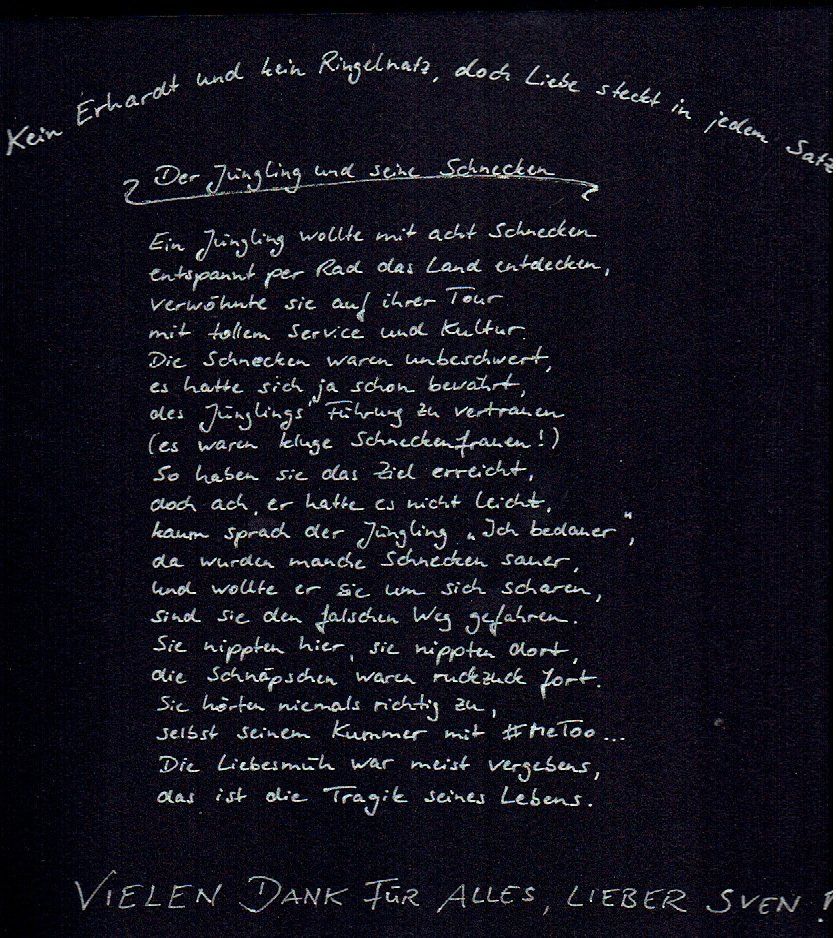 Kein Erhardt und kein Ringelnatz, doch Liebe steckt in jedem Satz
Der Jüngling und seine Schnecken
Ein Jüngling wollte mit acht Schnecken
entspannt per Rad das Land entdecken,
verwöhnte sie auf ihrer Tour
mit tollem Service und Kultur.
Die Schnecken waren unbeschwert,
es hatte sich ja schon bewährt,
des Jünglings Führung zu vertrauen
(es waren kluge Schneckenfrauen!)
So haben sie das Ziel erreicht,
doch ach, er hatte es nicht leicht,
kaum sprach der Jüngling „Ich bedauer",
da wurden manche Schnecken sauer,
und wollte er sie um sich scharen,
sind sie den falschen Weg gefahren.
Sie nippten hier, sie nippten dort,
die Schnäpschen waren ruckzuck fort.
Sie hörten niemals richtig zu,
selbst seinem Kummer mit #MeToo...
Die Liebesmüh war meist vergebens,
das ist die Tragik seines Lebens.
VIELEN DANK FÜR ALLES, LIEBER SVEN!